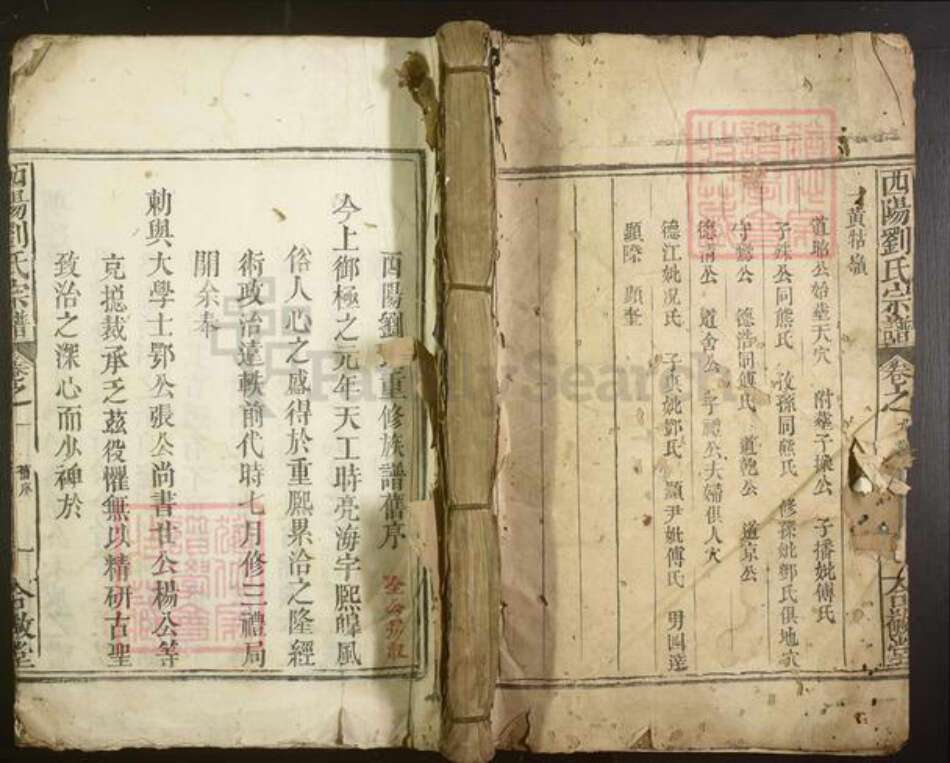 西陽劉氏宗譜 卷之
黃牯嶺
道昭公始塟天穴 附塟子操公 子播妣傅氏
子殊公同熊氏 汝孫同熊氏 修孫妣鄧氏俱地穴
公 德浩同傅氏 道乾公 道京公
德清公 道舍公 子禮公夫婦俱人穴
德江妣况氏 子真妣鄧氏 顯尹妣傅氏 男四達
顯際 顯奎
FamilySearch
西陽劉 重修族譜舊序
今上御極之元年天工時亮海宇熙皥風
俗人心之盛得於重熙累洽之隆經
術政治遠軼前代時七月修三禮局
開余奉
勅與大學士鄂公張公尚書 公楊公等
克總裁承乏茲役懼無以精研古聖
致治之深心而少裨於
西陽劉氏宗譜 卷之一 舊序 一 合敬堂